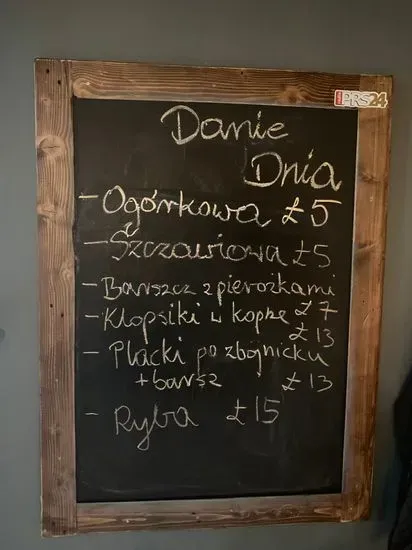 PRS24
Danie
Dnia
- Ogórkowa £5
- Szczawiowa £5
- Barszcz z pierożkami
£7
- Klopsiki w kopke
£13
- Placki po zbójnicku
+ barsz £13
- Ryba £15